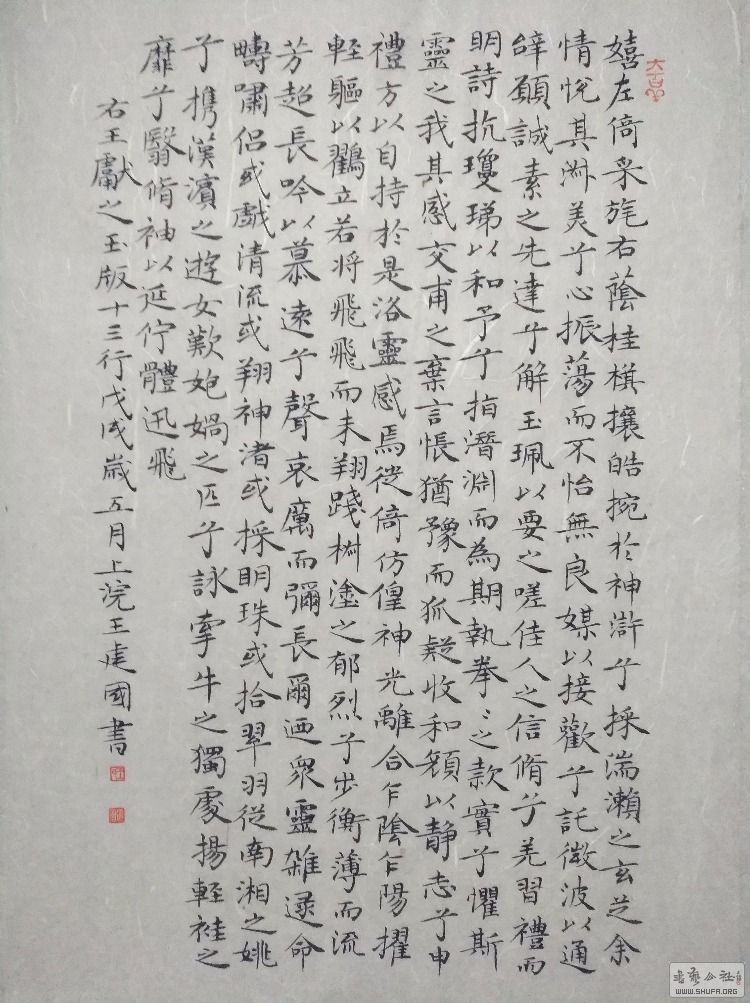 嬉左倚采旄右蔭桂旗攘皓捥於神滸兮採湍瀨之玄芝余
情悅其淑美兮心振蕩而不怡無良媒以接歡兮託微波以通
辝願誠素之先達兮解玉珮以要之嗟佳人之信脩兮羌習禮而
明詩抗瓊珶以和予兮指潛淵而為期執拳〻之款實兮懼斯
靈之我其感交甫之棄言悵猶豫而狐疑收和顏以静志兮申
禮方以自持於是洛靈感焉徙倚仿偟神光離合乍陰乍陽擢
輕軀以鸖立若将飛飛而未翔踐椒塗之郁烈兮步衡薄而流
芳超長吟以慕遠兮聲哀厲而彌長爾迺衆靈雑遝命
疇嘯侶或戲清流或翔神渚或採明珠或拾翠羽従南湘之姚
兮攜漢濱之遊女歎匏媧之匹兮詠牽牛之獨處揚輕袿之
靡兮翳脩袖以延佇體迅飛
右王獻之玉版十三行戊戌歲五月上浣王建國書
WWW.SHUFA.ORG